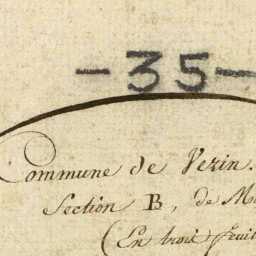 -35-
Commune de Vezin.
Section B, de Mu
(En trois feuil